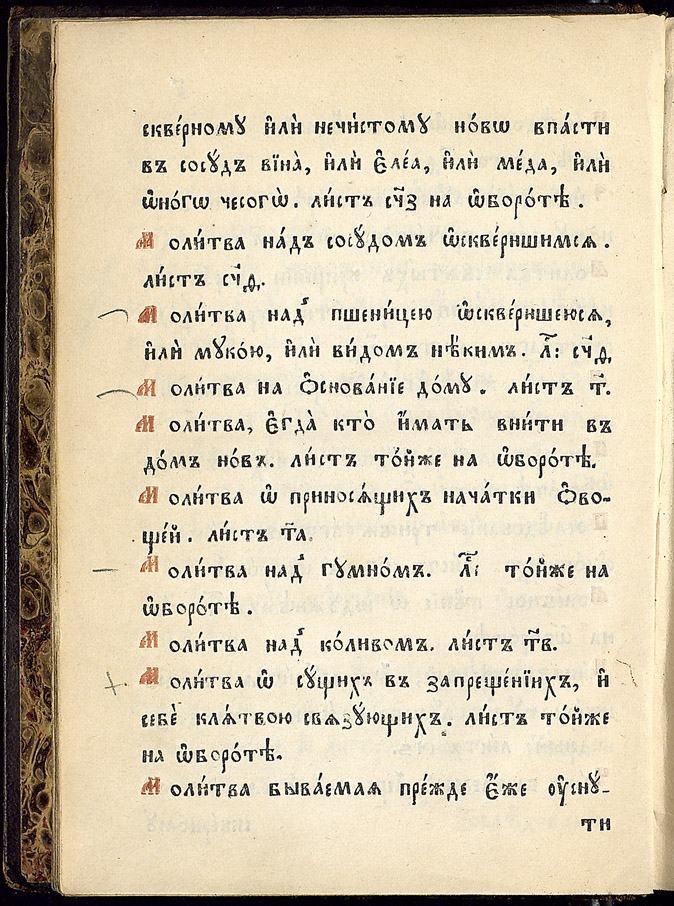 скве́рномꙋ и҆лѝ нечи́стомꙋ но́вѡ впа́сти
въ сосꙋ́дъ вїна̀, и҆лѝ є҆ле́а, и҆лѝ ме́да, и҆лѝ
и҆но́гѡ чесогѡ̀. ли́стъ сч҃з на ѡ҆боро́тѣ.
Моли́тва на́дъ сосꙋ́домъ ѡ҆скве́ршимсѧ.
ли́стъ сч҃ѳ.
Моли́тва над̾ пшени́цею ѡ҆скве́ршеюсѧ,
и҆лѝ мꙋко́ю, и҆лѝ ви́домъ нѣ́кимъ. л҃: сч҃ѳ
Моли́тва на ѻ҆снова́нїе до́мꙋ. ли́стъ т҃.
Моли́тва, є҆гда̀ кто̀ и҆́мать вни́ти въ
до́мъ но́въ. ли́стъ то́йже на ѡ҆боро́тѣ.
Моли́тва ѡ҆ приносѧ́щихъ нача́тки ѻ҆во-
ще́й. ли́стъ т҃а.
Моли́тва над̾ гꙋмно́мъ. л҃: то́йже на
ѡ҆боро́тѣ.
Моли́тва над̾ ко́ливомъ. ли́стъ т҃в.
Моли́тва ѡ҆ сꙋ́щихъ въ запреще́нїихъ, и҆
себѐ клѧ́твою свѧзꙋ́ющихъ. ли́стъ то́йже
на ѡ҆боро́тѣ.
Моли́тва быва́емаѧ пре́жде є҆́же ᲂу҆снꙋ́-
ти